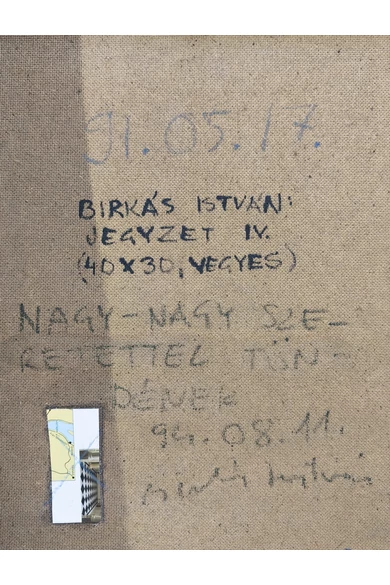 91.05.17.
BIRKÁS ISTVÁN:
JEGYZET IV.
(40X30, VEGYES)
NAGY-NAGY SZE-
RETETTEL TÜN-
DÉNEK
94.08.11.
Birkás István